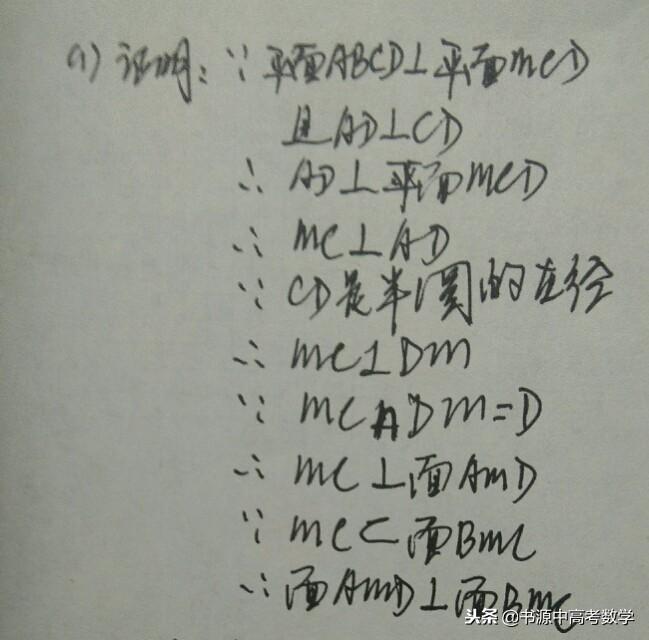 (1) 证明: ∵ 平面ABCD⊥平面MCD
且AD⊥CD
∴ AD⊥平面MCD
∴ MC⊥AD
∵ CD是半圆的直径
∴ MC⊥DM
∵ MC∩DM=D
∴ MC⊥面AMD
∵ MC⊂面BMC
∴ 面AMD⊥面BMC
头条 @书源中高考数学